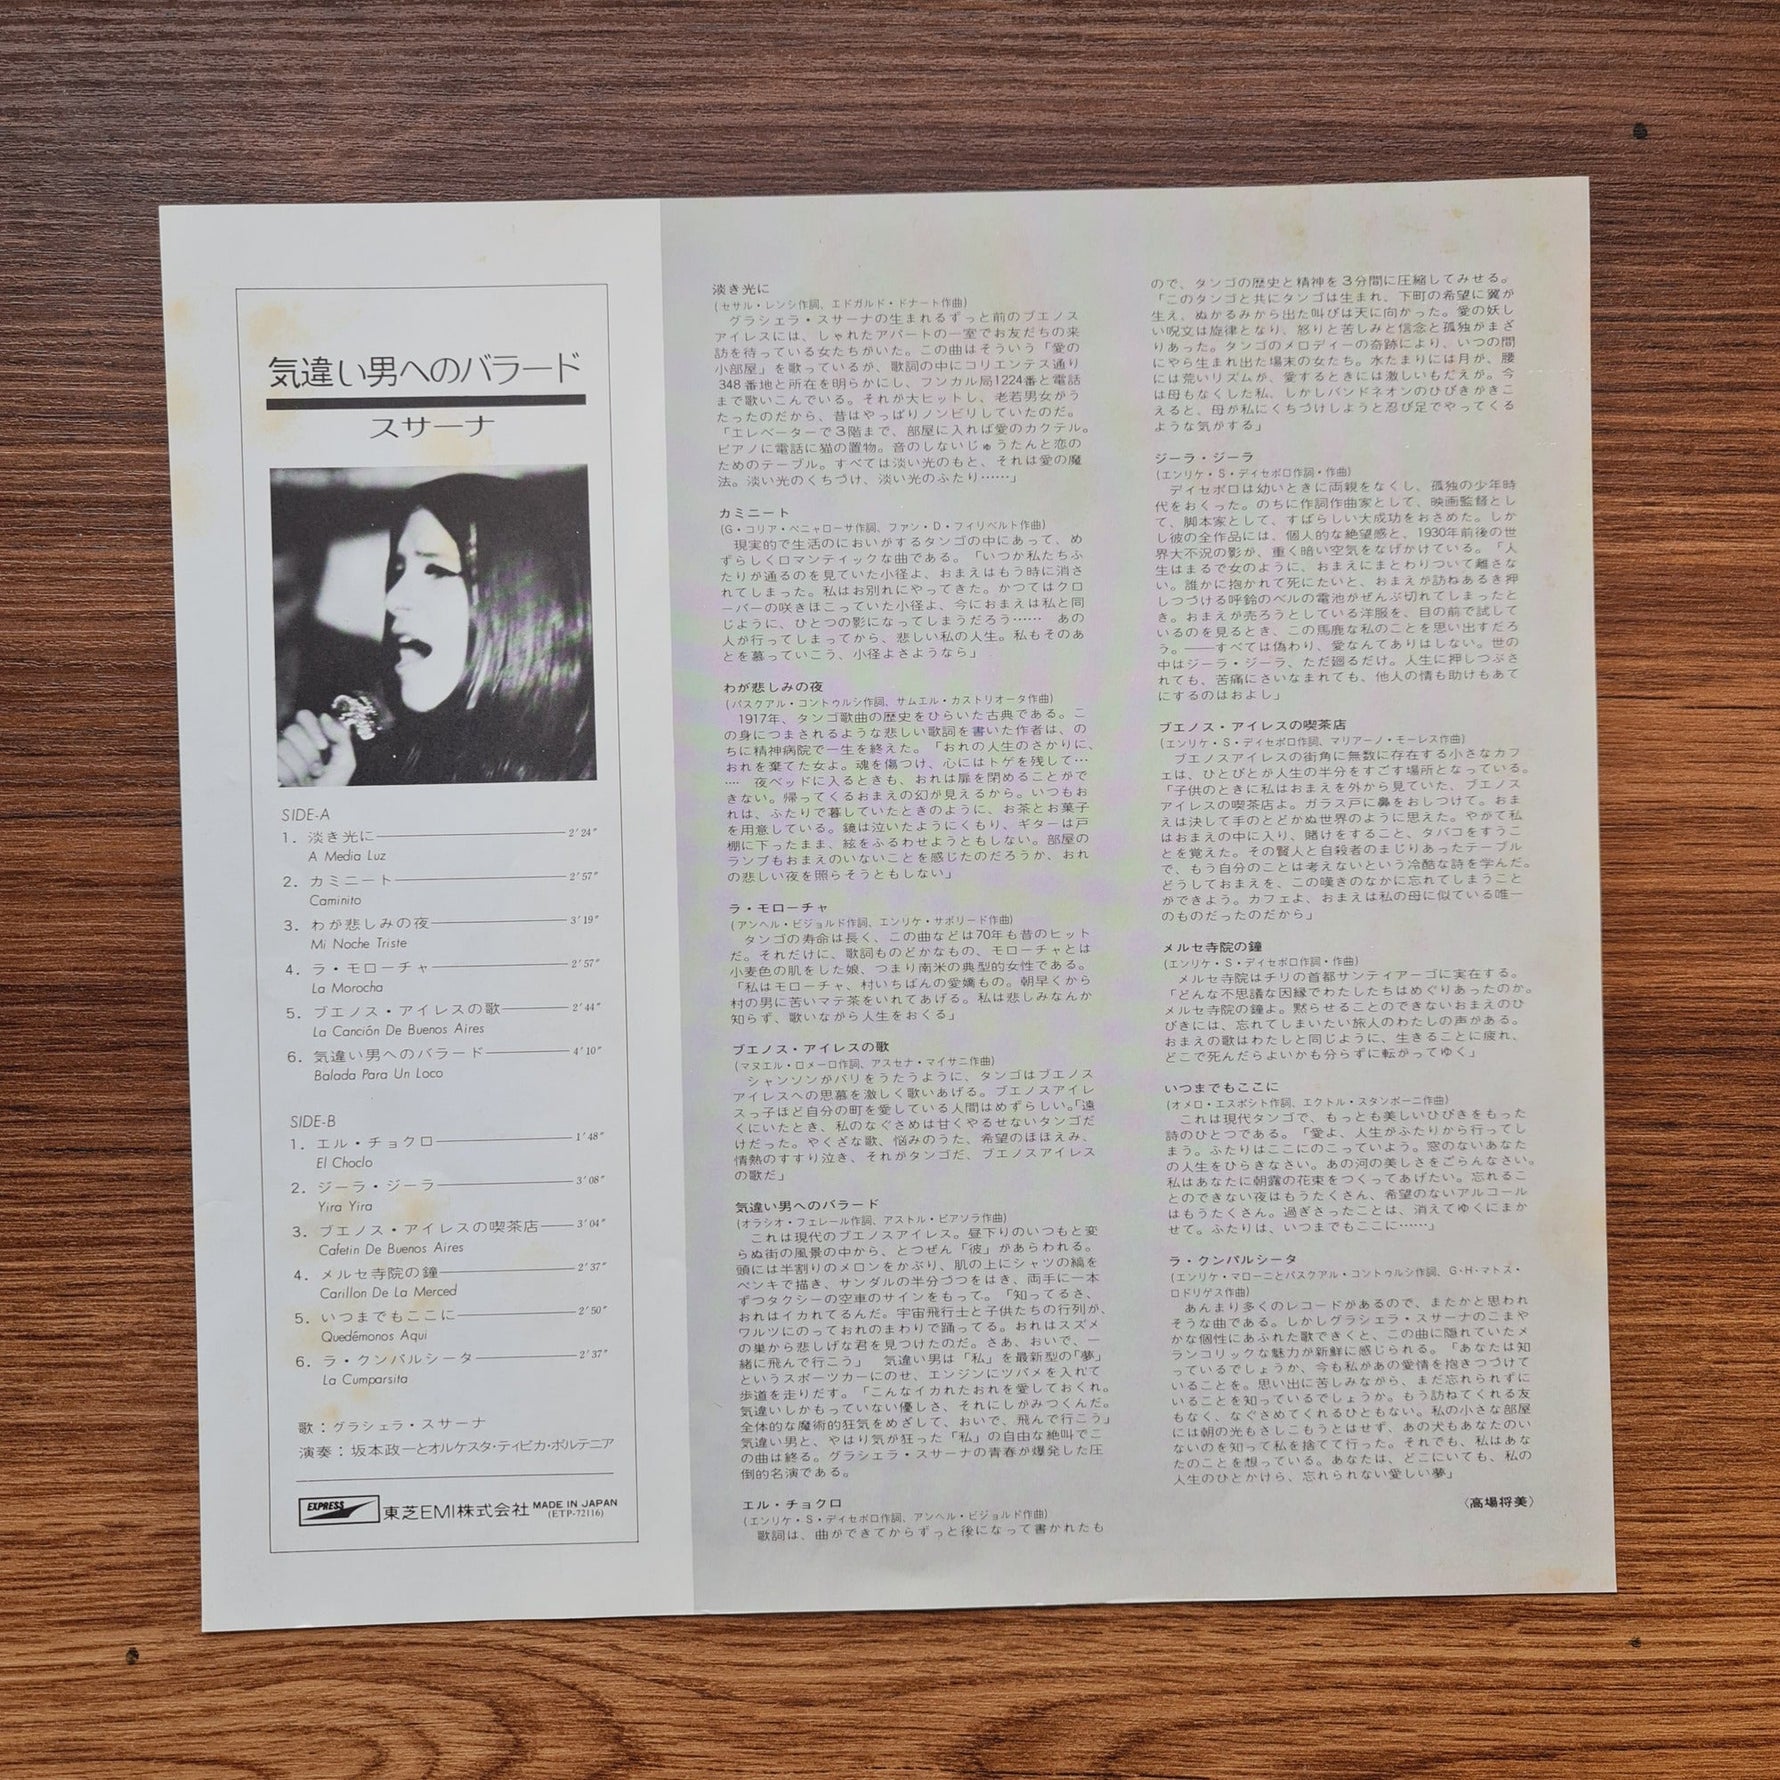 気違い男へのバラード
スサーナ
SIDE-A
1. 淡き光に 2'24"
A Media Luz
2. カミニート 2'57"
Caminito
3. わが悲しみの夜 3'19"
Mi Noche Triste
4. ラ・モローチャ 2'57"
La Morocha
5. ブエノス・アイレスの歌 2'44"
La Canción De Buenos Aires
6. 気違い男へのバラード 4'10"
Balada Para Un Loco
SIDE-B
1. エル・チョクロ 1'48"
El Choclo
2. ジーラ・ジーラ 3'08"
Yira Yira
3. ブエノス・アイレスの喫茶店 3'04"
Cafetin De Buenos Aires
4. メルセ寺院の鐘 2'37"
Carillon De La Merced
5. いつまでもここに 2'50"
Quedémonos Aqui
6. ラ・クンパルシータ 2'37"
La Cumparsita
歌：グラシェラ・スサーナ
演奏：坂本政一とオルケスタ・ティピカ・ポルテニア
EXPRESS 東芝EMI株式会社 MADE IN JAPAN
(ETP-72116)
淡き光に
(セサル・レンシ作詞、エドガルド・ドナート作曲)
グラシェラ・スサーナの生まれるずっと前のブエノス
アイレスには、しゃれたアパートの一室でお友だちの来
訪を待っている女たちがいた。この曲はそういう「愛の
小部屋」を歌っているが、歌詞の中にコリエンテス通り
348番地と所在を明らかにし、フンカル局1224番と電話
まで歌いこんでいる。それが大ヒットし、老若男女がう
たったのだから、昔はやっぱりノンビリしていたのだ。
「エレベーターで3階まで、部屋に入れば愛のカクテル。
ピアノに電話に猫の置物。音のしないじゅうたんと恋の
ためのテーブル。すべては淡い光のもと、それは愛の魔
法。淡い光のくちづけ、淡い光のふたり……」
カミニート
(G・コリア・ペニャローサ作詞、ファン・D・フィリベルト作曲)
現実的で生活のにおいがするタンゴの中にあって、め
ずらしくロマンティックな曲である。「いつか私たちふ
たりが通るのを見ていた小径よ、おまえはもう時に消さ
れてしまった。私はお別れにやってきた。かつてはクロ
ーバーの咲きほこっていた小径よ、今におまえは私と同
じように、ひとつの影になってしまうだろう…… あの
人が行ってしまってから、悲しい私の人生。私もそのあ
とを慕っていこう、小径よさようなら」
わが悲しみの夜
(パスクアル・コントゥルシ作詞、サムエル・カストリオータ作曲)
1917年、タンゴ歌曲の歴史をひらいた古典である。こ
の身につまされるような悲しい歌詞を書いた作者は、の
ちに精神病院で一生を終えた。「おれの人生のさかりに、
おれを棄てた女よ。魂を傷つけ、心にはトゲを残して…
…. 夜ベッドに入るときも、おれは扉を閉めることがで
きない。帰ってくるおまえの幻が見えるから。いつもお
れは、ふたりで暮していたときのように、お茶とお菓子
を用意している。鏡は泣いたようにくもり、ギターは戸
棚に下ったまま、絃をふるわせようともしない。部屋の
ランプもおまえのいないことを感じたのだろうか、おれ
の悲しい夜を照らそうともしない」
ラ・モローチャ
(アンヘル・ビジョルド作詞、エンリケ・サボリード作曲)
タンゴの寿命は長く、この曲などは70年も昔のヒット
だ。それだけに、歌詞ものどかなもの、モローチャとは
小麦色の肌をした娘、つまり南米の典型的女性である。
「私はモローチャ、村いちばんの愛嬌もの。朝早くから
村の男に苦いマテ茶をいれてあげる。私は悲しみなんか
知らず、歌いながら人生をおくる」
ブエノス・アイレスの歌
(マヌエル・ロメーロ作詞、アスセナ・マイサニ作曲)
シャンソンがパリをうたうように、タンゴはブエノス
アイレスへの思慕を激しく歌いあげる。ブエノスアイレ
スっ子ほど自分の町を愛している人間はめずらしい。「遠
くにいたとき、私のなぐさめは甘くやるせないタンゴだ
けだった。やくざな歌、悩みのうた、希望のほほえみ、
情熱のすすり泣き、それがタンゴだ、ブエノスアイレス
の歌だ」
気違い男へのバラード
(オラシオ・フェレール作詞、アストル・ピアソラ作曲)
これは現代のブエノスアイレス。昼下りのいつもと変
らぬ街の風景の中から、とつぜん「彼」があらわれる。
頭には半割りのメロンをかぶり、肌の上にシャツの縞を
ペンキで描き、サンダルの半分づつをはき、両手に一本
ずつタクシーの空車のサインをもって。「知ってるさ、
おれはイカれてるんだ。宇宙飛行士と子供たちの行列が、
ワルツにのっておれのまわりで踊ってる。おれはスズメ
の巣から悲しげな君を見つけたのだ。さあ、おいで、一
緒に飛んで行こう」 気違い男は「私」を最新型の「夢」
というスポーツカーにのせ、エンジンにツバメを入れて
歩道を走りだす。「こんなイカれたおれを愛しておくれ。
気違いしかもっていない優しさ、それにしがみつくんだ。
全体的な魔術的狂気をめざして、おいで、飛んで行こう」
気違い男と、やはり気が狂った「私」の自由な絶叫でこ
の曲は終る。グラシェラ・スサーナの青春が爆発した圧
倒的名演である。
エル・チョクロ
(エンリケ・S・ディセポロ作詞、アンヘル・ビジョルド作曲)
歌詞は、曲ができてからずっと後になって書かれたも
ので、タンゴの歴史と精神を3分間に圧縮してみせる。
「このタンゴと共にタンゴは生まれ、下町の希望に翼が
生え、ぬかるみから出た叫びは天に向かった。愛の妖し
い呪文は旋律となり、怒りと苦しみと信念と孤独がまざ
りあった。タンゴのメロディーの奇跡により、いつの間
にやら生まれ出た場末の女たち。水たまりには月が、腰
には荒いリズムが、愛するときには激しいもだえが。今
は母もなくした私、しかしバンドネオンのひびきがきこ
えると、母が私にくちづけしようと忍び足でやってくる
ような気がする」
ジーラ・ジーラ
(エンリケ・S・ディセポロ作詞・作曲)
ディセポロは幼いときに両親をなくし、孤独の少年時
代をおくった。のちに作詞作曲家として、映画監督とし
て、脚本家として、すばらしい大成功をおさめた。しか
し彼の全作品には、個人的な絶望感と、1930年前後の世
界大不況の影が、重く暗い空気をなげかけている。「人
生はまるで女のように、おまえにまとわりついて離さな
い。誰かに抱かれて死にたいと、おまえが訪ねあるき押
しつづける呼鈴のベルの電池がぜんぶ切れてしまったと
き。おまえが売ろうとしている洋服を、目の前で試して
いるのを見るとき、この馬鹿な私のことを思い出すだろ
う。――すべては偽わり、愛なんてありはしない。世の
中はジーラ・ジーラ、ただ廻るだけ。人生に押しつぶさ
れても、苦痛にさいなまれても、他人の情も助けもあて
にするのはおよし」
ブエノス・アイレスの喫茶店
(エンリケ・S・ディセポロ作詞、マリアーノ・モーレス作曲)
ブエノスアイレスの街角に無数に存在する小さなカフ
ェは、ひとびとが人生の半分をすごす場所となっている。
「子供のときに私はおまえを外から見ていた、ブエノス
アイレスの喫茶店よ。ガラス戸に鼻をおしつけて。おま
えは決して手のとどかぬ世界のように思えた。やがて私
はおまえの中に入り、賭けをすること、タバコをすうこ
とを覚えた。その賢人と自殺者のまじりあったテーブル
で、もう自分のことは考えないという冷酷な詩を学んだ。
どうしておまえを、この嘆きのなかに忘れてしまうこと
ができよう。カフェよ、おまえは私の母に似ている唯一
のものだったのだから」
メルセ寺院の鐘
(エンリケ・S・ディセポロ作詞・作曲)
メルセ寺院はチリの首都サンティアーゴに実在する。
「どんな不思議な因縁でわたしたちはめぐりあったのか。
メルセ寺院の鐘よ。黙らせることのできないおまえのひ
びきには、忘れてしまいたい旅人のわたしの声がある。
おまえの歌はわたしと同じように、生きることに疲れ、
どこで死んだらよいかも分らずに転がってゆく」
いつまでもここに
(オメロ・エスポシト作詞、エクトル・スタンポーニ作曲)
これは現代タンゴで、もっとも美しいひびきをもった
詩のひとつである。「愛よ、人生がふたりから行ってし
まう。ふたりはここにのこっていよう。窓のないあなた
の人生をひらきなさい。あの河の美しさをごらんなさい。
私はあなたに朝露の花束をつくってあげたい。忘れるこ
とのできない夜はもうたくさん、希望のないアルコール
はもうたくさん。過ぎさったことは、消えてゆくにまか
せて。ふたりは、いつまでもここに……」
ラ・クンパルシータ
(エンリケ・マローニとパスクアル・コントゥルシ作詞、G・H・マトス・
ロドリゲス作曲)
あんまり多くのレコードがあるので、またかと思われ
そうな曲である。しかしグラシェラ・スサーナのこまや
かな個性にあふれた歌できくと、この曲に隠れていたメ
ランコリックな魅力が新鮮に感じられる。「あなたは知
っているでしょうか、今も私があの愛情を抱きつづけて
いることを。思い出に苦しみながら、まだ忘れられずに
いることを知っているでしょうか。もう訪ねてくれる友
もなく、なぐさめてくれるひともない。私の小さな部屋
には朝の光もさしこもうとはせず、あの犬もあなたのい
ないのを知って私を捨てて行った。それでも、私はあな
たのことを想っている。あなたは、どこにいても、私の
人生のひとかけら、忘れられない愛しい夢」
〈高場将美〉